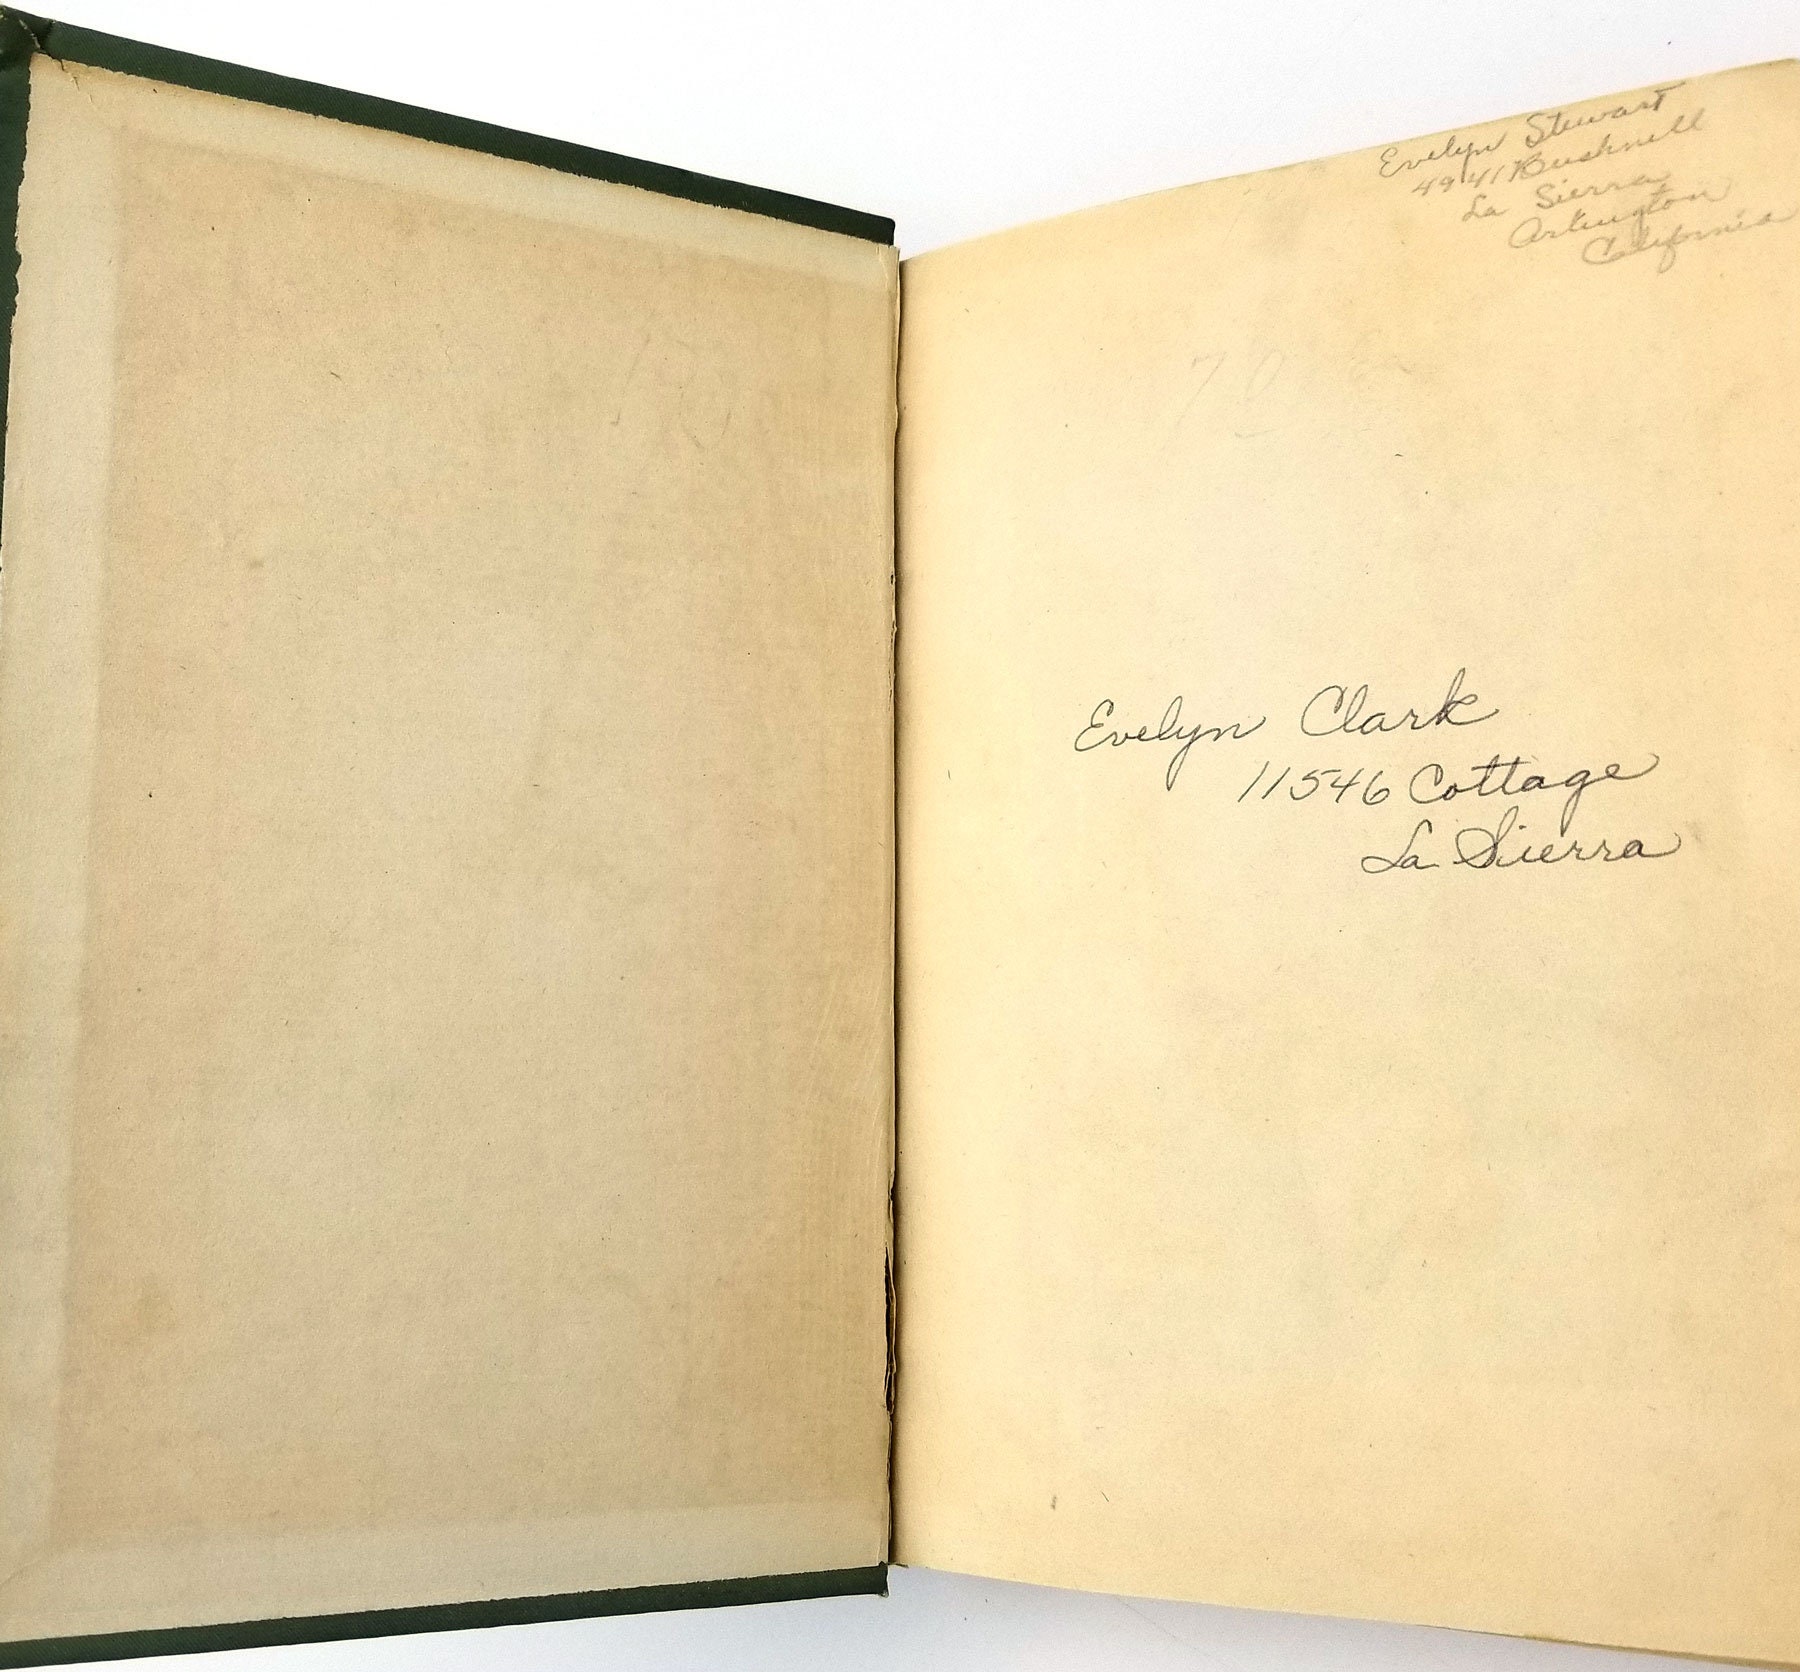 Evelyn Stewart
4941 Bushnell
La Sierra
Arlington
California
70
Evelyn Clark
11546 Cottage
La Sierra